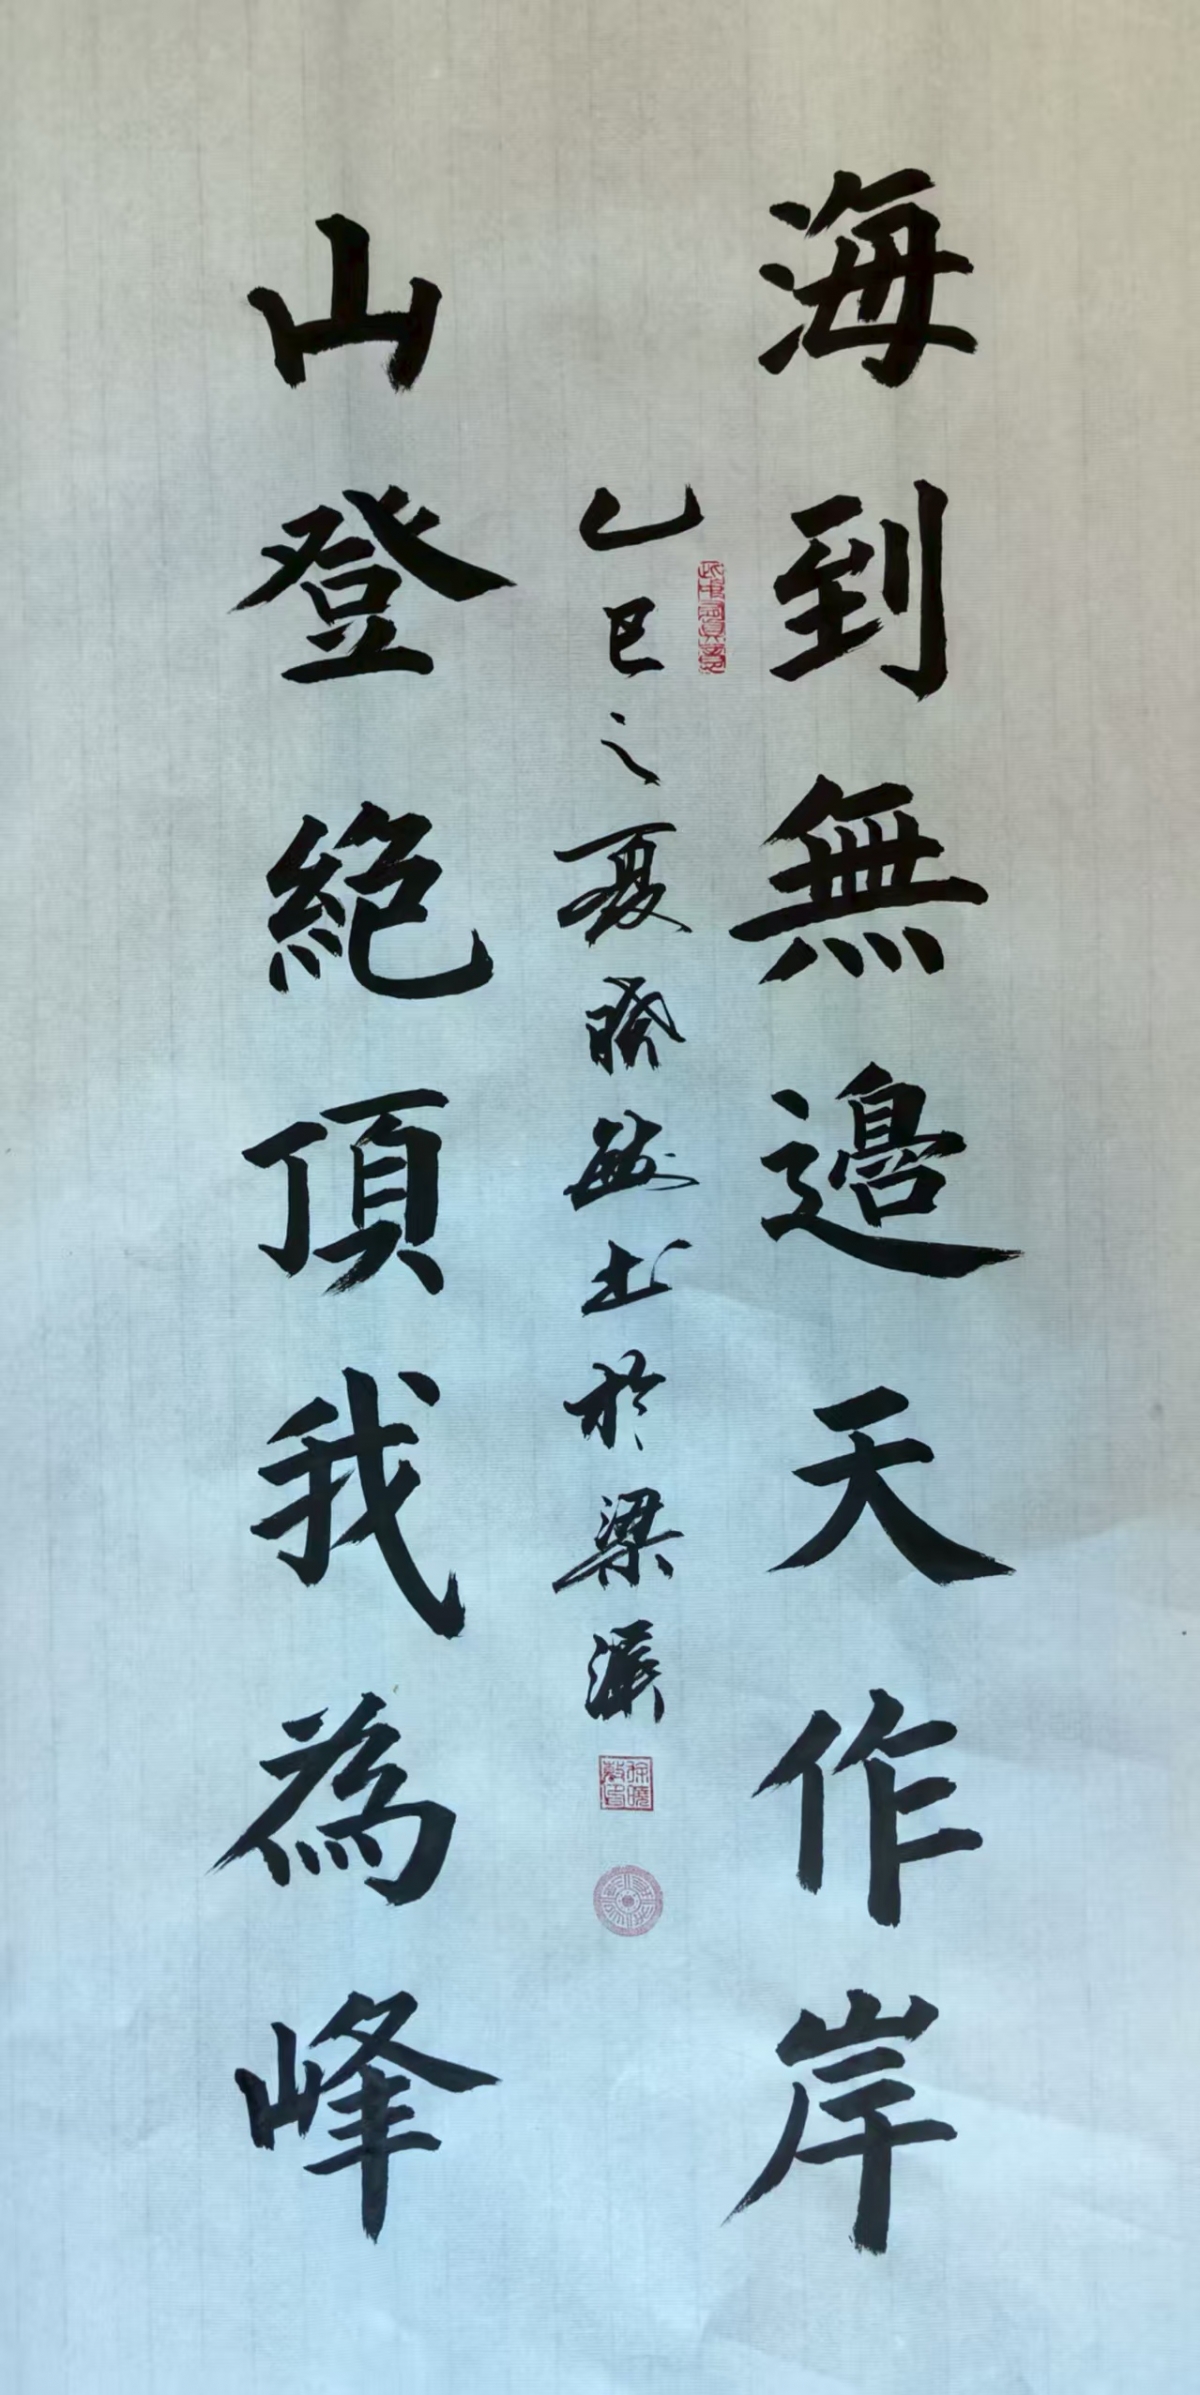 海到無邊天作岸
乙巳之夏曉敏書於梁溪
山登絕頂我為峰